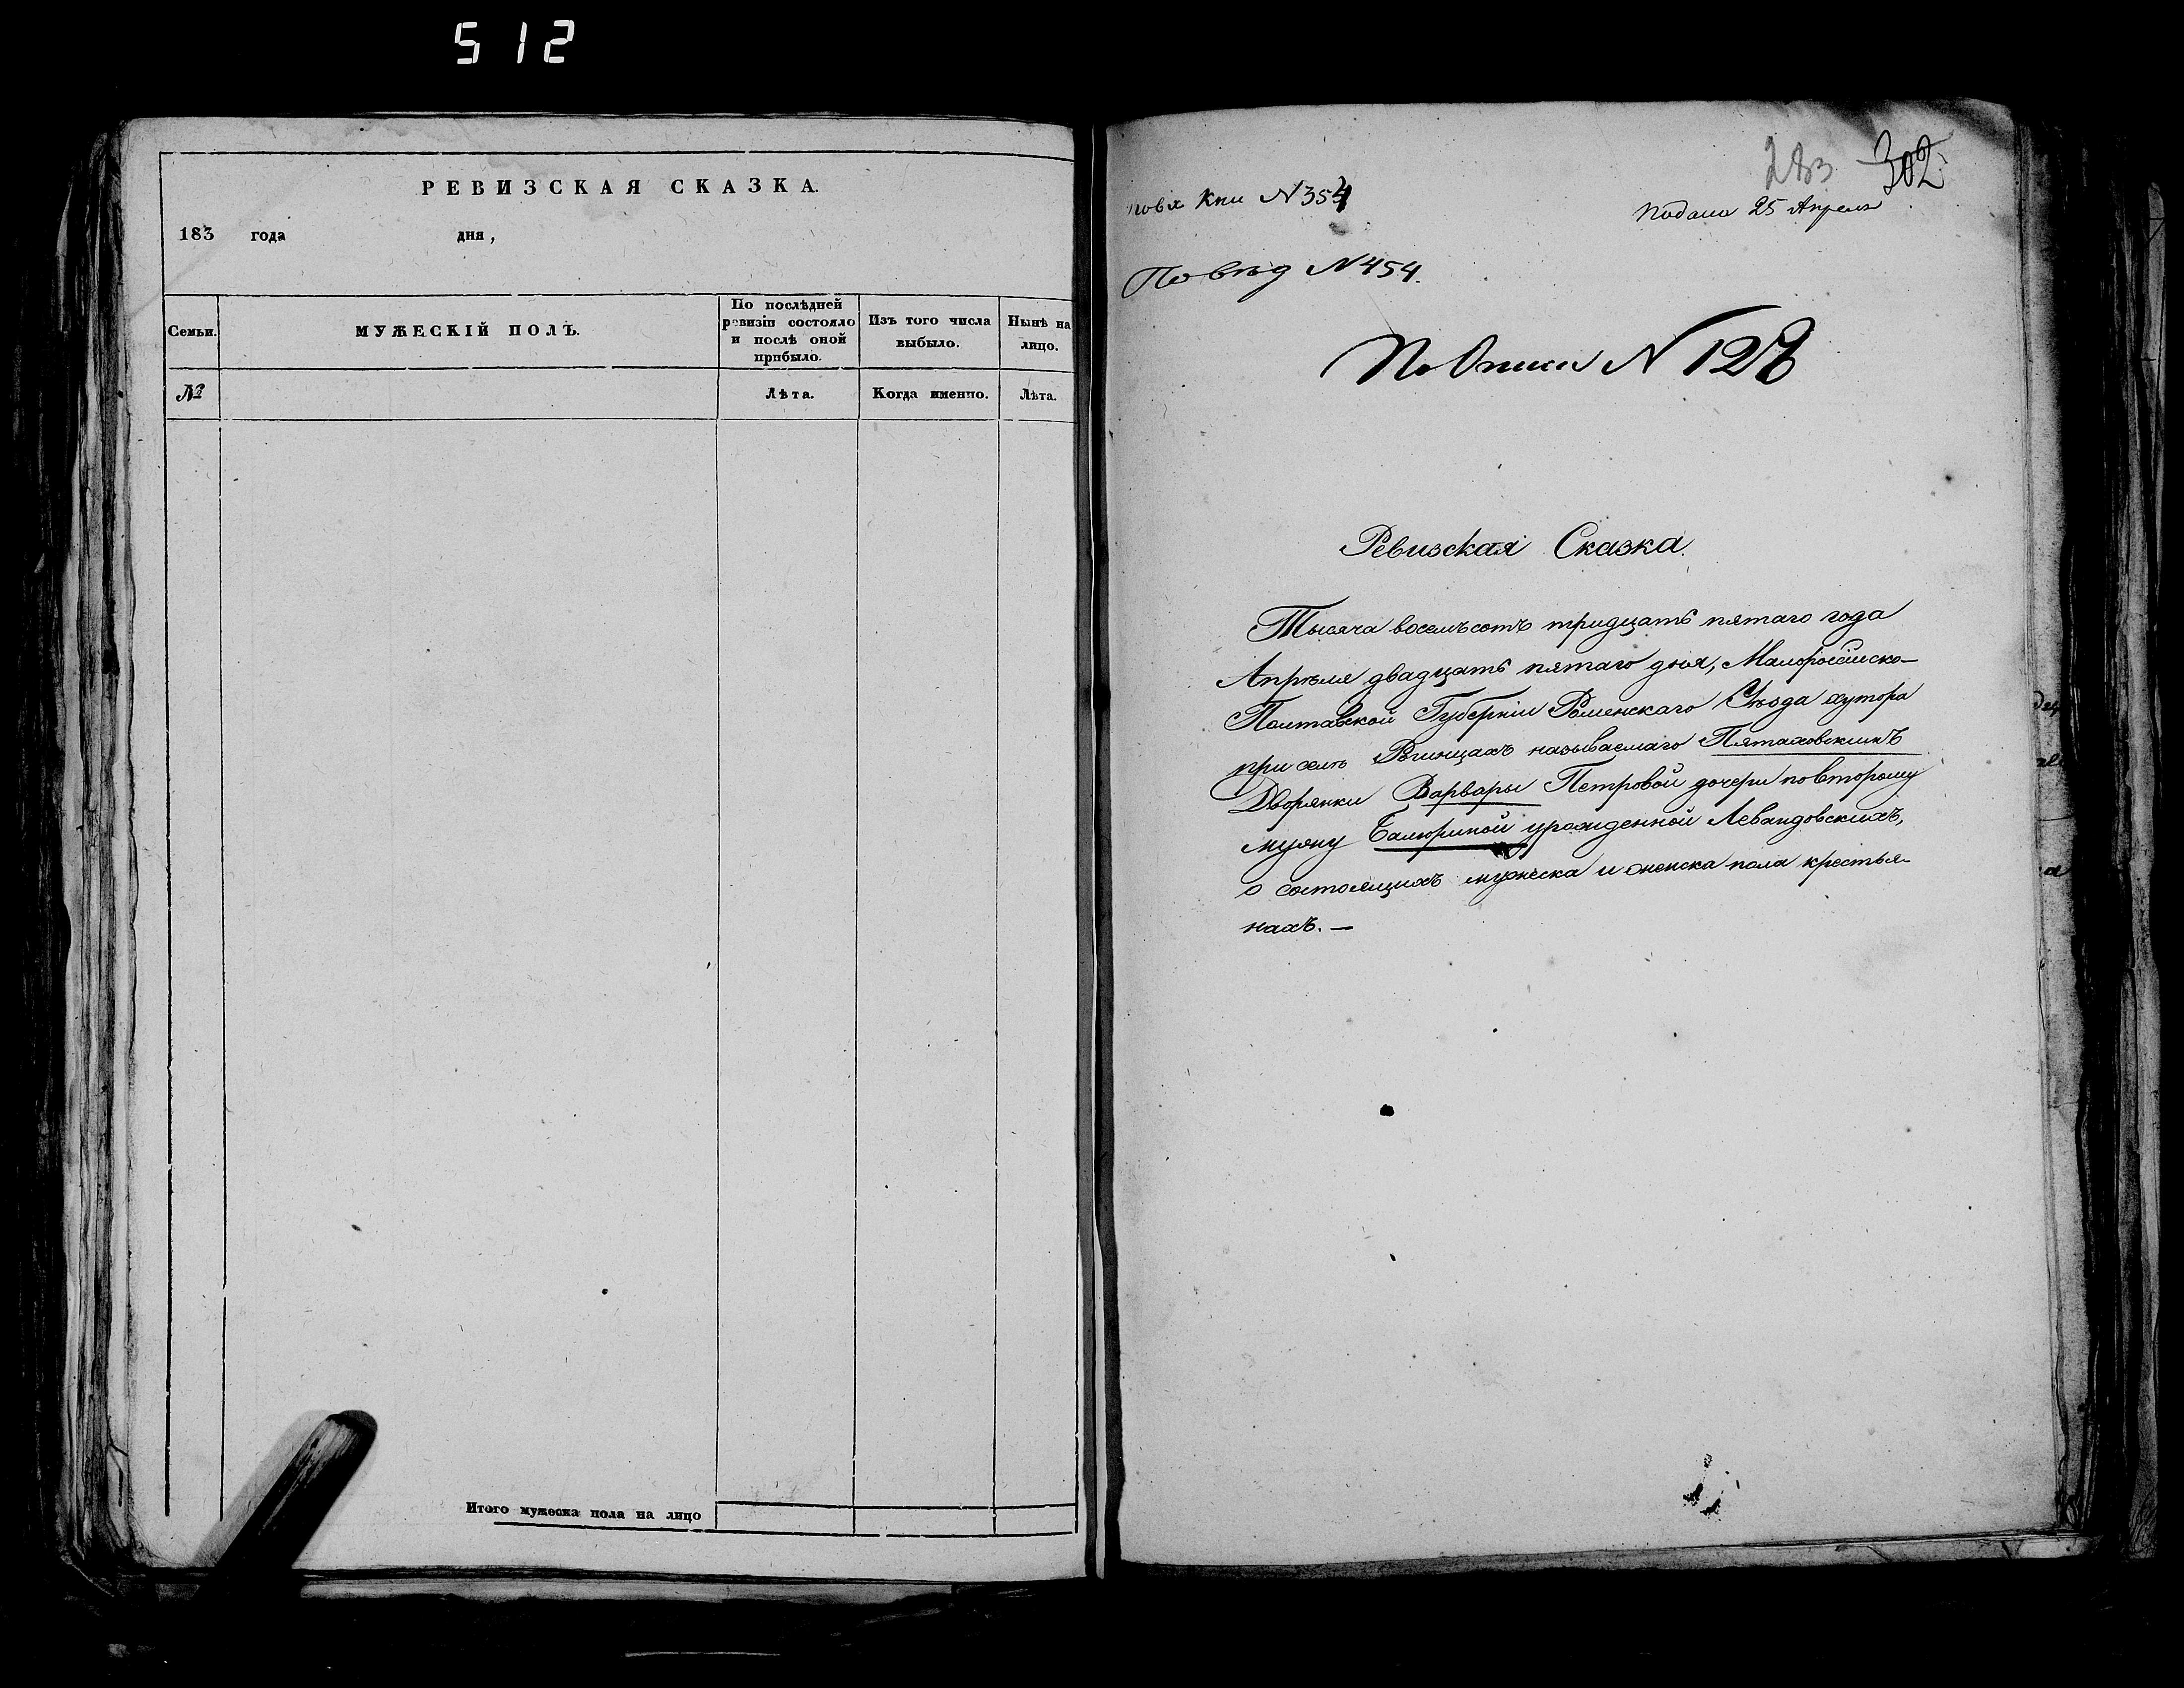 512
РЕВИЗСКАЯ СКАЗКА.
183 года дня,
Семьи.
МУЖЕСКІЙ ПОЛЪ.
По послѣдней ревизіи состояло и послѣ оной прибыло.
Изъ того числа выбыло.
Нынѣ на лицо.
№
Лѣта.
Когда именно.
Лѣта.
Итого мужеска пола на лицо
283 302
По вх Кни N 354
Подана 25 Апреля
По вѣд N 454.
По Описи N 128
Ревизская Сказка.
Тысяча восемъсотъ тридцать пятаго года
Апрѣля двадцать пятаго дня, Малороссійско-
Полтавской Губерніи Роменскаго Уѣзда хутора
при селѣ называемаго Пятаховскимъ
Дворянки Варвары Петровой дочери по второму
мужу урожденной Левандовскихъ,
о состоящихъ мужеска и женска пола крестья-
нахъ. —